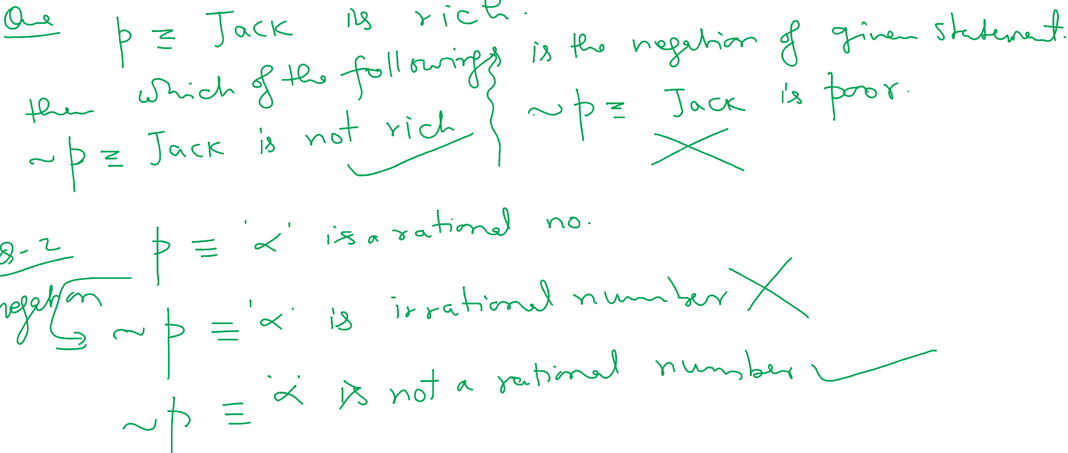 Que p ≡ Jack is rich.
then which of the followings is the negation of given statement.
~p ≡ Jack is not rich ~p ≡ Jack is poor.
Q-2 p ≡ 'α' is a rational no.
negation ~p ≡ 'α' is irrational number
~p ≡ 'α' is not a rational number